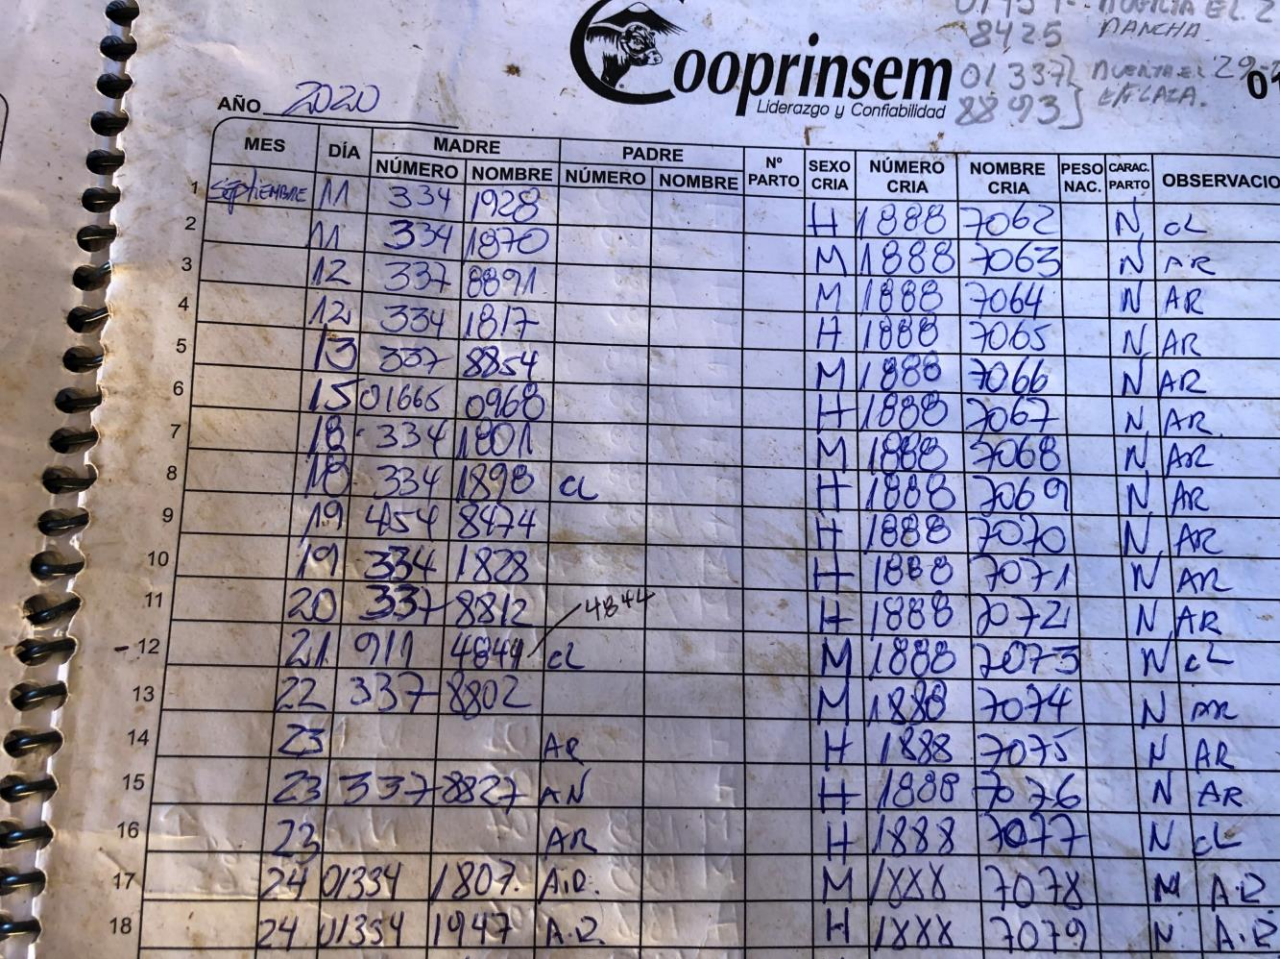 8425 MANCHA.
Cooprinsem
Liderazgo y Confiabilidad
01337 MUERTA EL 29
8893
AÑO 2020
MES DÍA MADRE PADRE Nº PARTO SEXO CRIA NÚMERO CRIA NOMBRE CRIA PESO NAC. CARAC. PARTO OBSERVACIO
NÚMERO NOMBRE NÚMERO NOMBRE
1 Septiembre 11 334 1928 H 1888 7062 N CL
2 11 334 1870 M 1888 7063 N AR
3 12 337 8891 M 1888 7064 N AR
4 12 334 1817 H 1888 7065 N AR
5 13 337 8854 M 1888 7066 N AR
6 15 01665 0968 H 1888 7067 N AR
7 18 334 1801 M 1888 7068 N AR
8 18 334 1898 CL H 1888 7069 N AR
9 19 454 8474 H 1888 7070 N AR
10 19 334 1828 H 1888 7071 N AR
11 20 337 8812 4844 H 1888 7072 N AR
12 21 911 4844 CL M 1888 7073 N CL
13 22 337 8802 M 1888 7074 N AR
14 23 AR H 1888 7075 N AR
15 23 337 8827 AN H 1888 7076 N AR
16 23 AR H 1888 7077 N CL
17 24 01334 1807. A.R. M 1888 7078 N A.R
18 24 01334 1947 A.R. H 1888 7079 N A.R